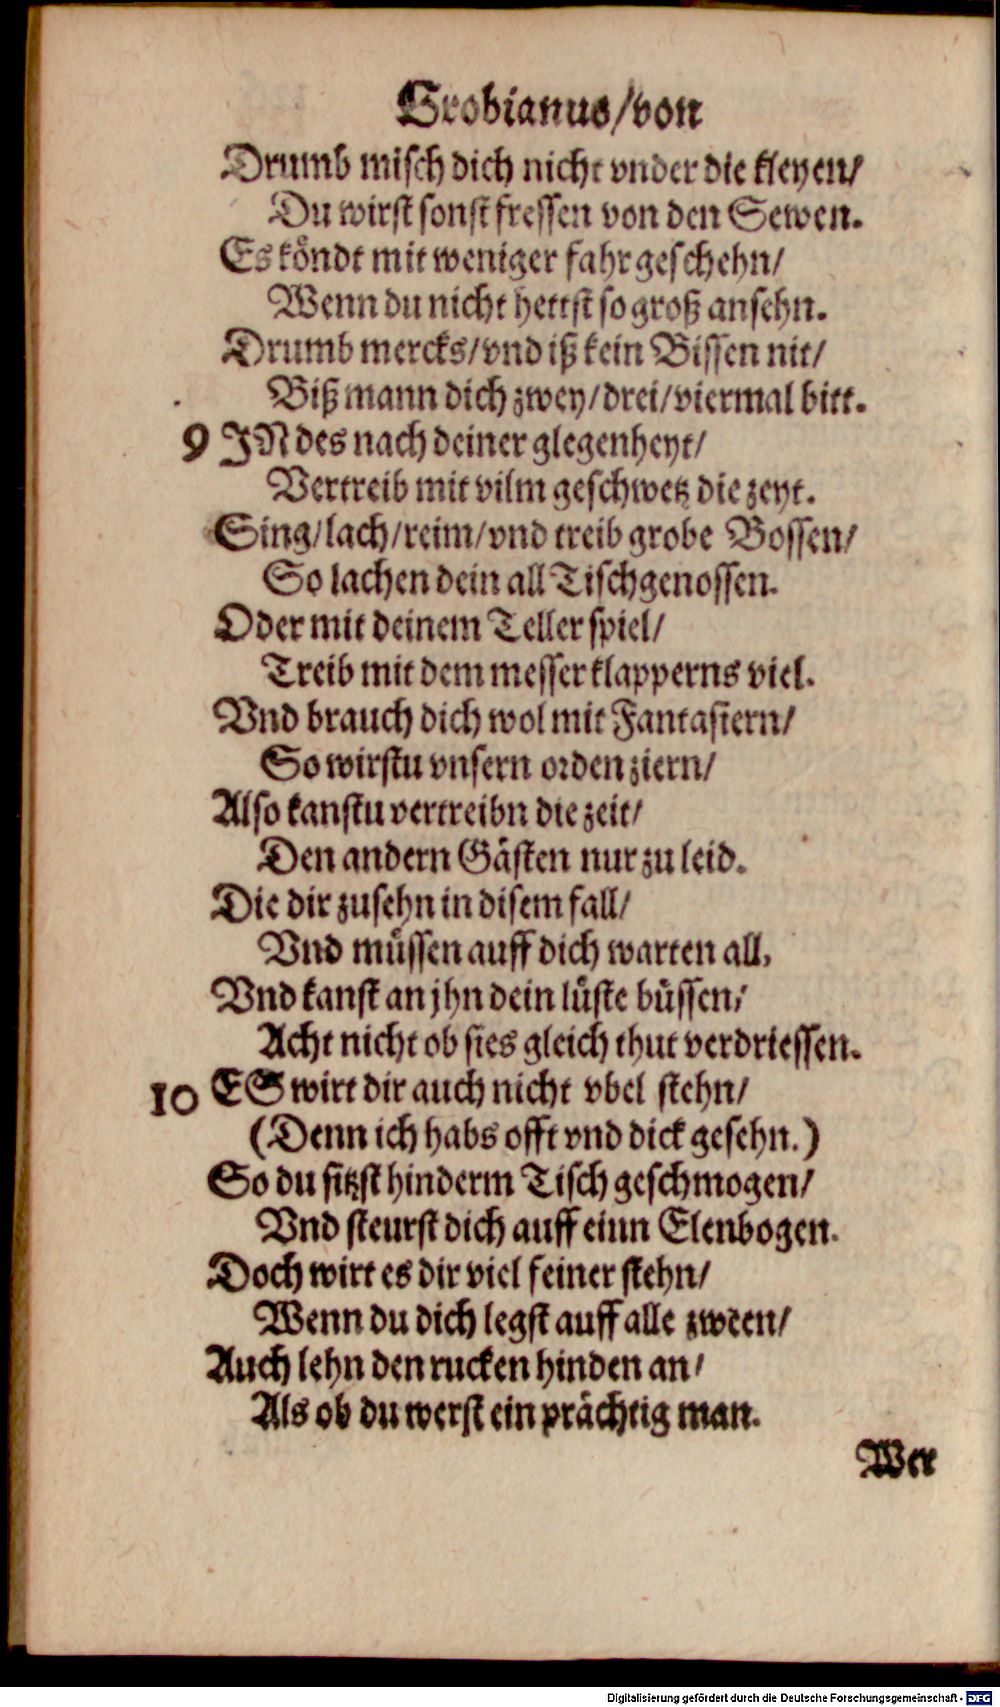 Grobianus/von
Drumb misch dich nicht vnder die kleyen/
Du wirst sonst fressen von den Sewen.
Es köndt mit weniger fahr geschehn/
Wenn du nicht hettst so groß ansehn.
Drumb mercks/vnd iß kein Bissen nit/
Biß mann dich zwey/drei/viermal bitt.
9 INdes nach deiner glegenheyt/
Vertreib mit vilm geschwetz die zeyt.
Sing/lach/reim/vnd treib grobe Bossen/
So lachen dein all Tischgenossen.
Oder mit deinem Teller spiel/
Treib mit dem messer klapperns viel.
Vnd brauch dich wol mit Fantasiern/
So wirstu vnsern orden ziern/
Also kanstu vertreibn die zeit/
Den andern Gästen nur zu leid.
Die dir zusehn in disem fall/
Vnd müssen auff dich warten all,
Vnd kanst an jhn dein lüste büssen/
Acht nicht ob sies gleich thut verdriessen.
10 ES wirt dir auch nicht vbel stehn/
(Denn ich habs offt vnd dick gesehn.)
So du sitzst hinderm Tisch geschmogen/
Vnd steurst dich auff einn Elenbogen.
Doch wirt es dir viel feiner stehn/
Wenn du dich legst auff alle zween/
Auch lehn den rucken hinden an/
Als ob du werst ein prächtig man.
Wer
Digitalisierung gefördert durch die Deutsche Forschungsgemeinschaft - DFG